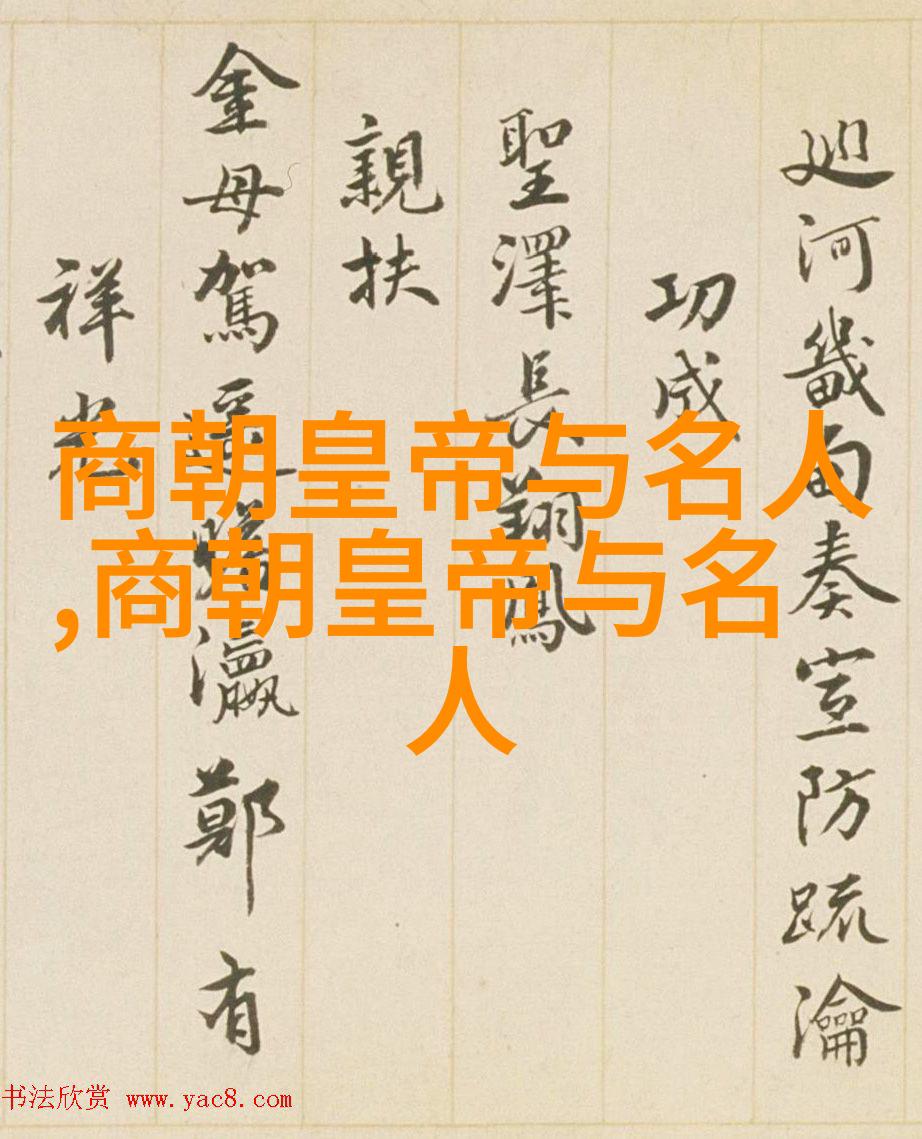 廵河畿甸奏宣防疏瀹
功成
聖澤長翔鳳
親扶
金母駕瀛鄭有
祥
商朝皇帝与名人
,商朝皇帝与名
人
书法欣赏 www.yac8.com